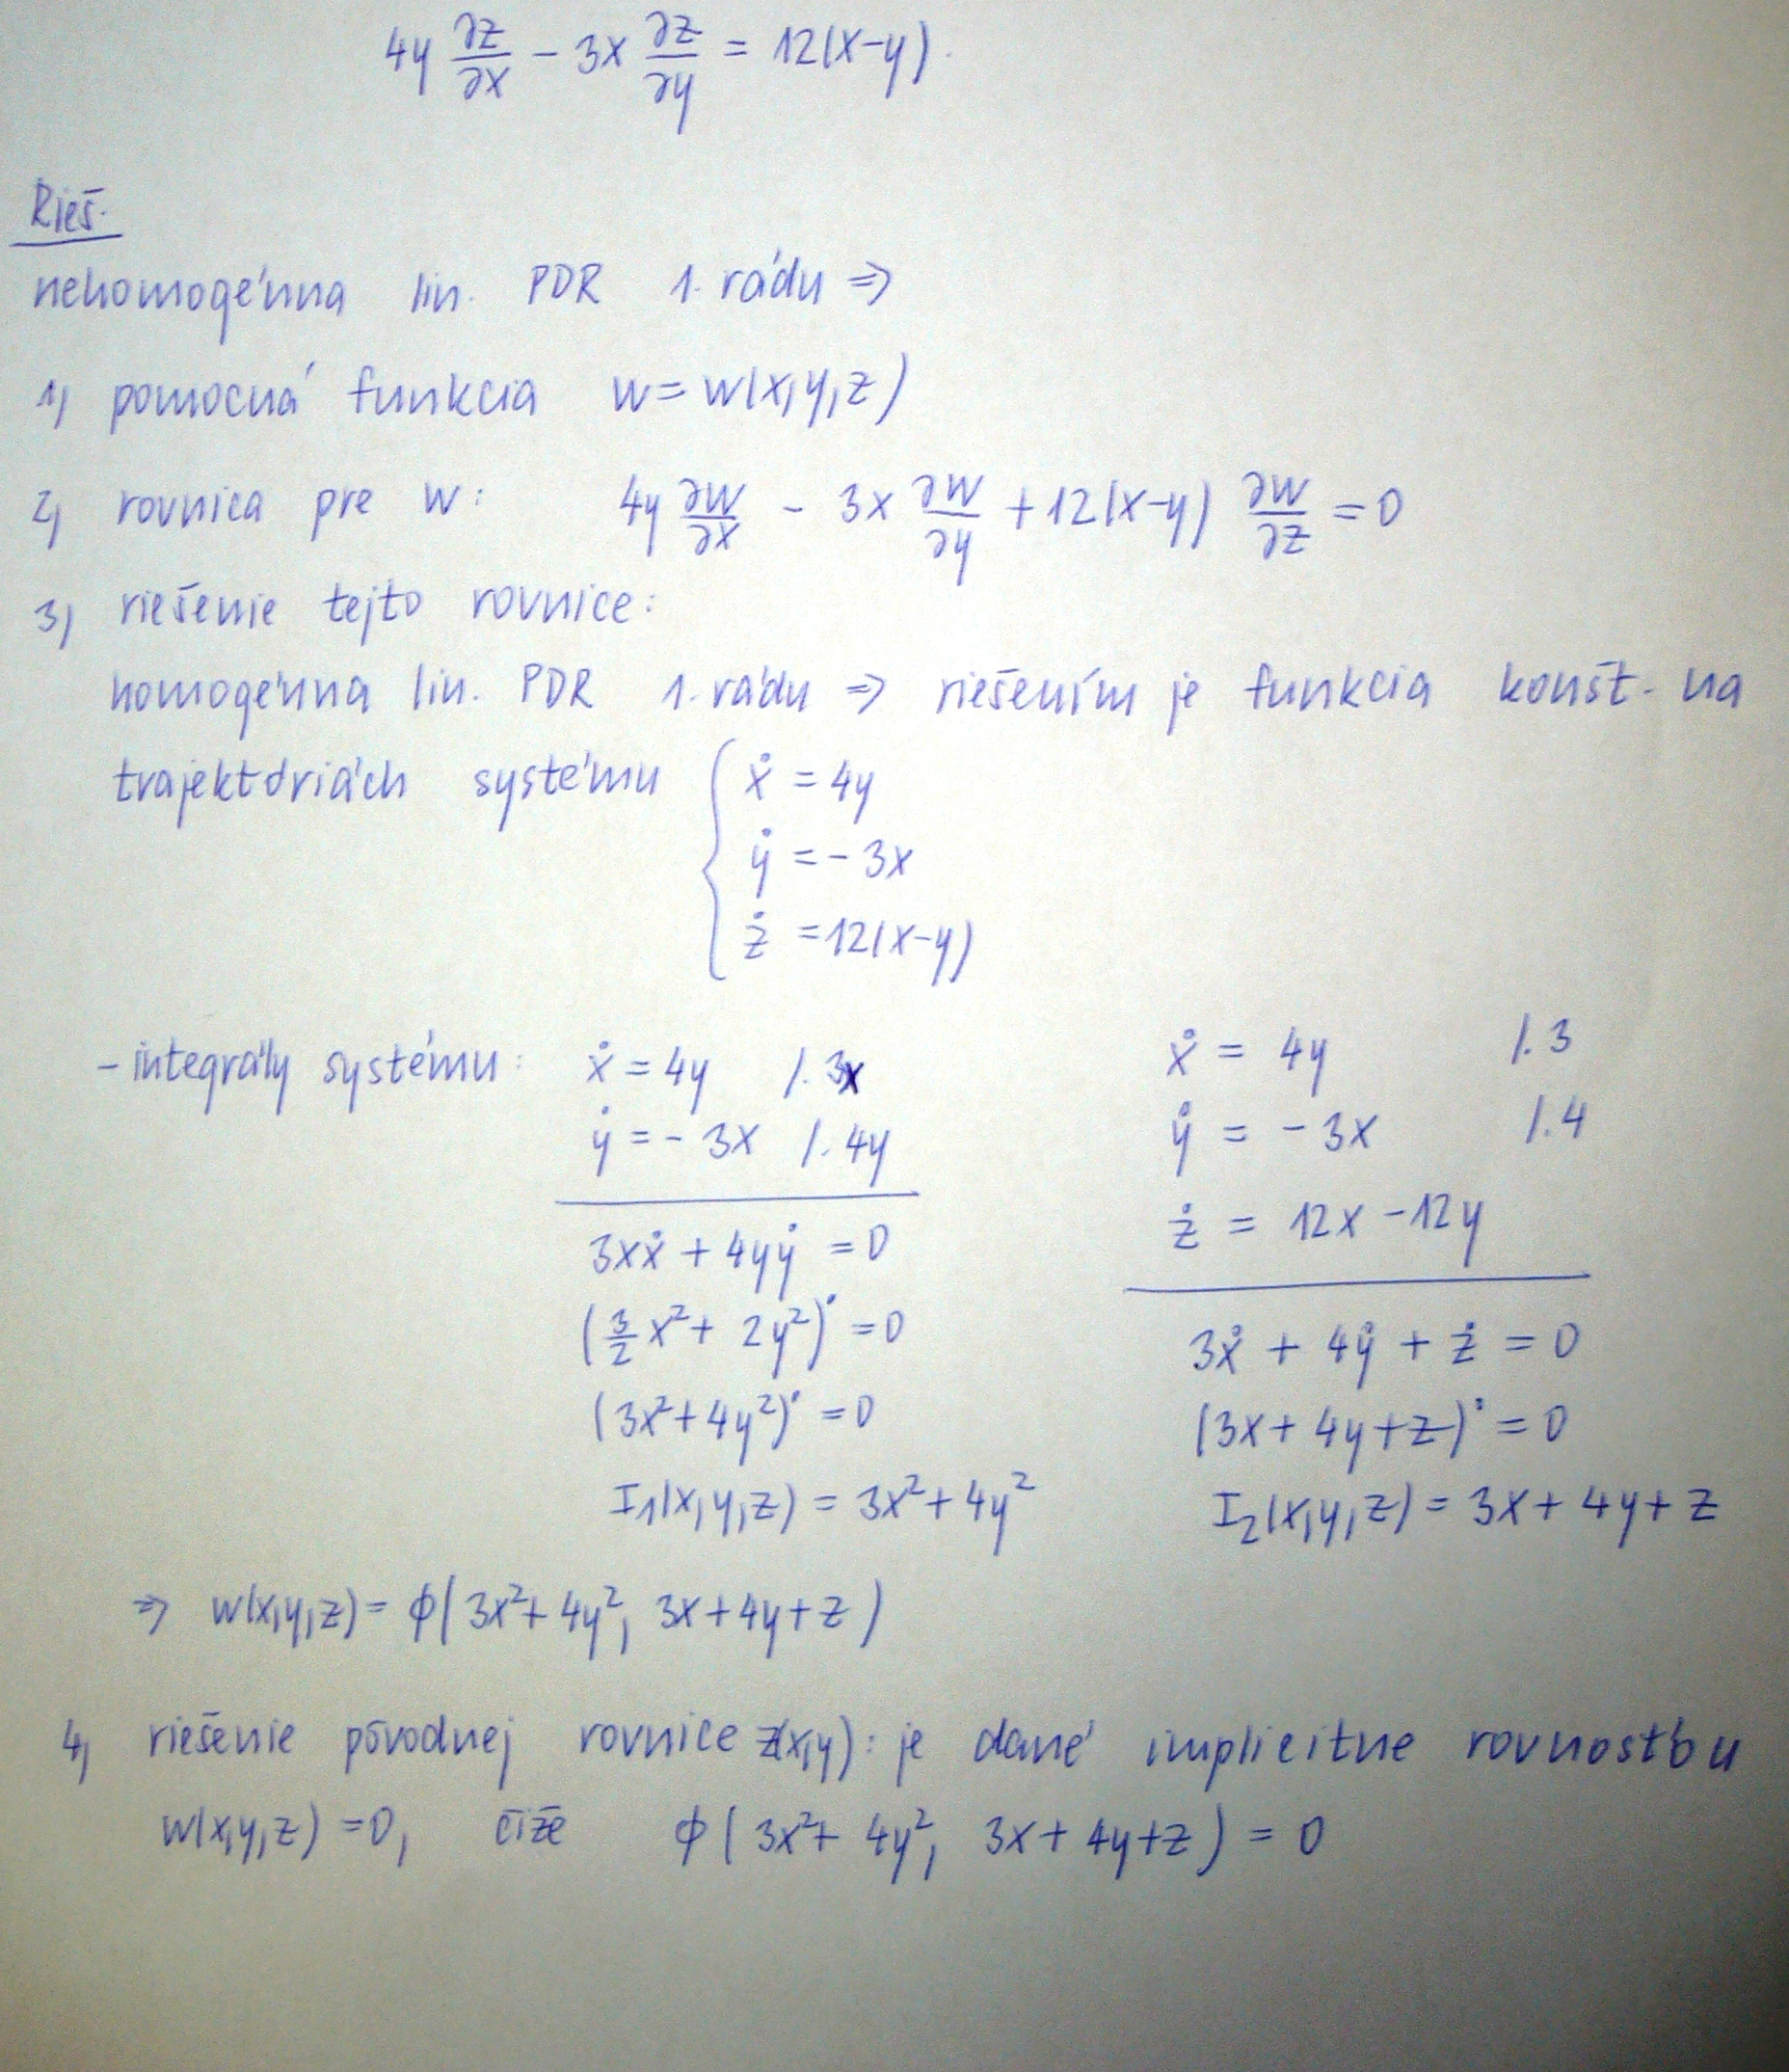 4y ∂z/∂x - 3x ∂z/∂y = 12(x-y).
Rieš.
nehomogénna lin. PDR 1. rádu ⇒
1) pomocná funkcia w = w(x,y,z)
2) rovnica pre w: 4y ∂w/∂x - 3x ∂w/∂y + 12(x-y) ∂w/∂z = 0
3) riešenie tejto rovnice:
homogénna lin. PDR 1. rádu ⇒ riešením je funkcia konšt. na
trajektóriách systému { ẋ = 4y
ẏ = -3x
ż = 12(x-y)
- integrály systému: ẋ = 4y /.3x
ẏ = -3x /.4y
3xẋ + 4yẏ = 0
(3/2 x² + 2y²)˙ = 0
(3x² + 4y²)˙ = 0
I₁(x,y,z) = 3x² + 4y²
ẋ = 4y /.3
ẏ = -3x /.4
ż = 12x - 12y
3ẋ + 4ẏ + ż = 0
(3x + 4y + z)˙ = 0
I₂(x,y,z) = 3x + 4y + z
⇒ w(x,y,z) = ϕ(3x² + 4y², 3x + 4y + z)
4) riešenie pôvodnej rovnice z(x,y): je dané implicitne rovnosťou
w(x,y,z) = 0, čiže ϕ(3x² + 4y², 3x + 4y + z) = 0